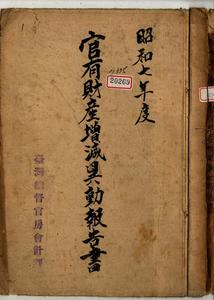 昭和七年度
官有財産増減異動報告書
20269
臺灣總督官房會計課